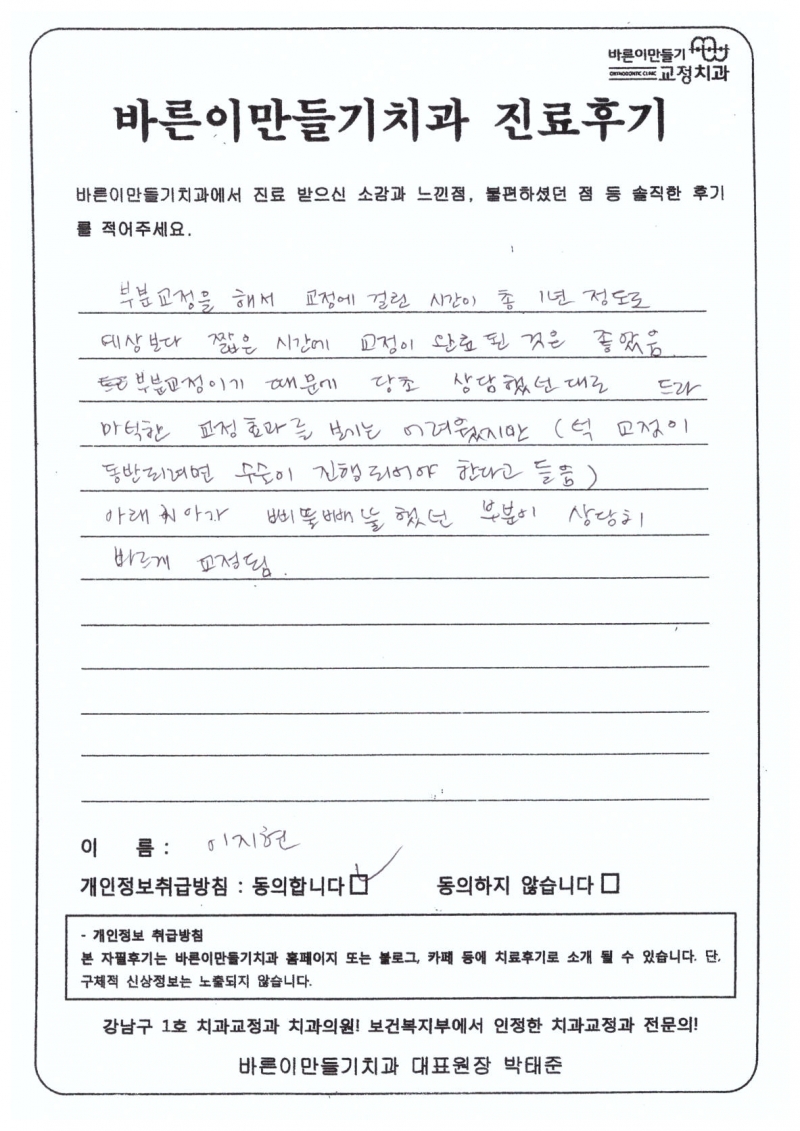 바른이만들기
ORTHODONTIC CLINIC 교정치과
바른이만들기치과 진료후기
바른이만들기치과에서 진료 받으신 소감과 느낀점, 불편하셨던 점 등 솔직한 후기
를 적어주세요.
부분교정을 해서 교정에 걸린 시간이 총 1년 정도로
예상보다 짧은 시간에 교정이 완료된 것은 좋았음.
부분교정이기 때문에 당초 상담했던대로 드라
마틱한 교정효과를 보기는 어려웠지만 (턱 교정이
동반되려면 수술이 진행되어야 한다고 들음)
아래 치아가 삐뚤빼뚤했던 부분이 상당히
바르게 교정됨.
이 름 : 이지현
개인정보취급방침 : 동의합니다 동의하지 않습니다
- 개인정보 취급방침
본 자필후기는 바른이만들기치과 홈페이지 또는 블로그, 카페 등에 치료후기로 소개 될 수 있습니다. 단,
구체적 신상정보는 노출되지 않습니다.
강남구 1호 치과교정과 치과의원! 보건복지부에서 인정한 치과교정과 전문의!
바른이만들기치과 대표원장 박태준